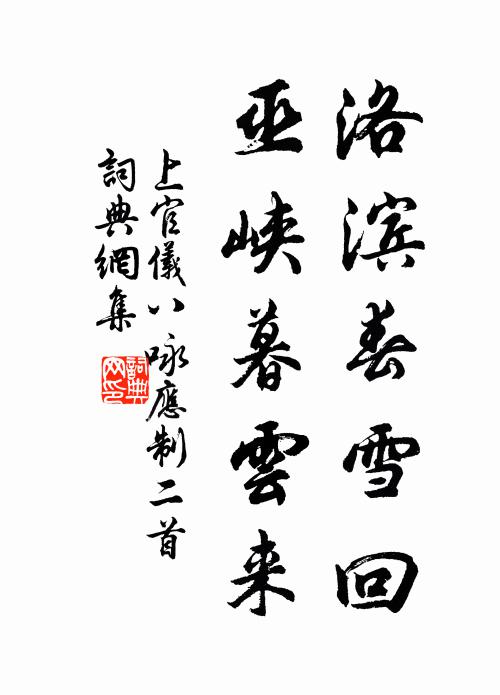 洛滨春雪回
巫峡暮雲来
上官儀八咏應制二首
詞典網集
詞典网印